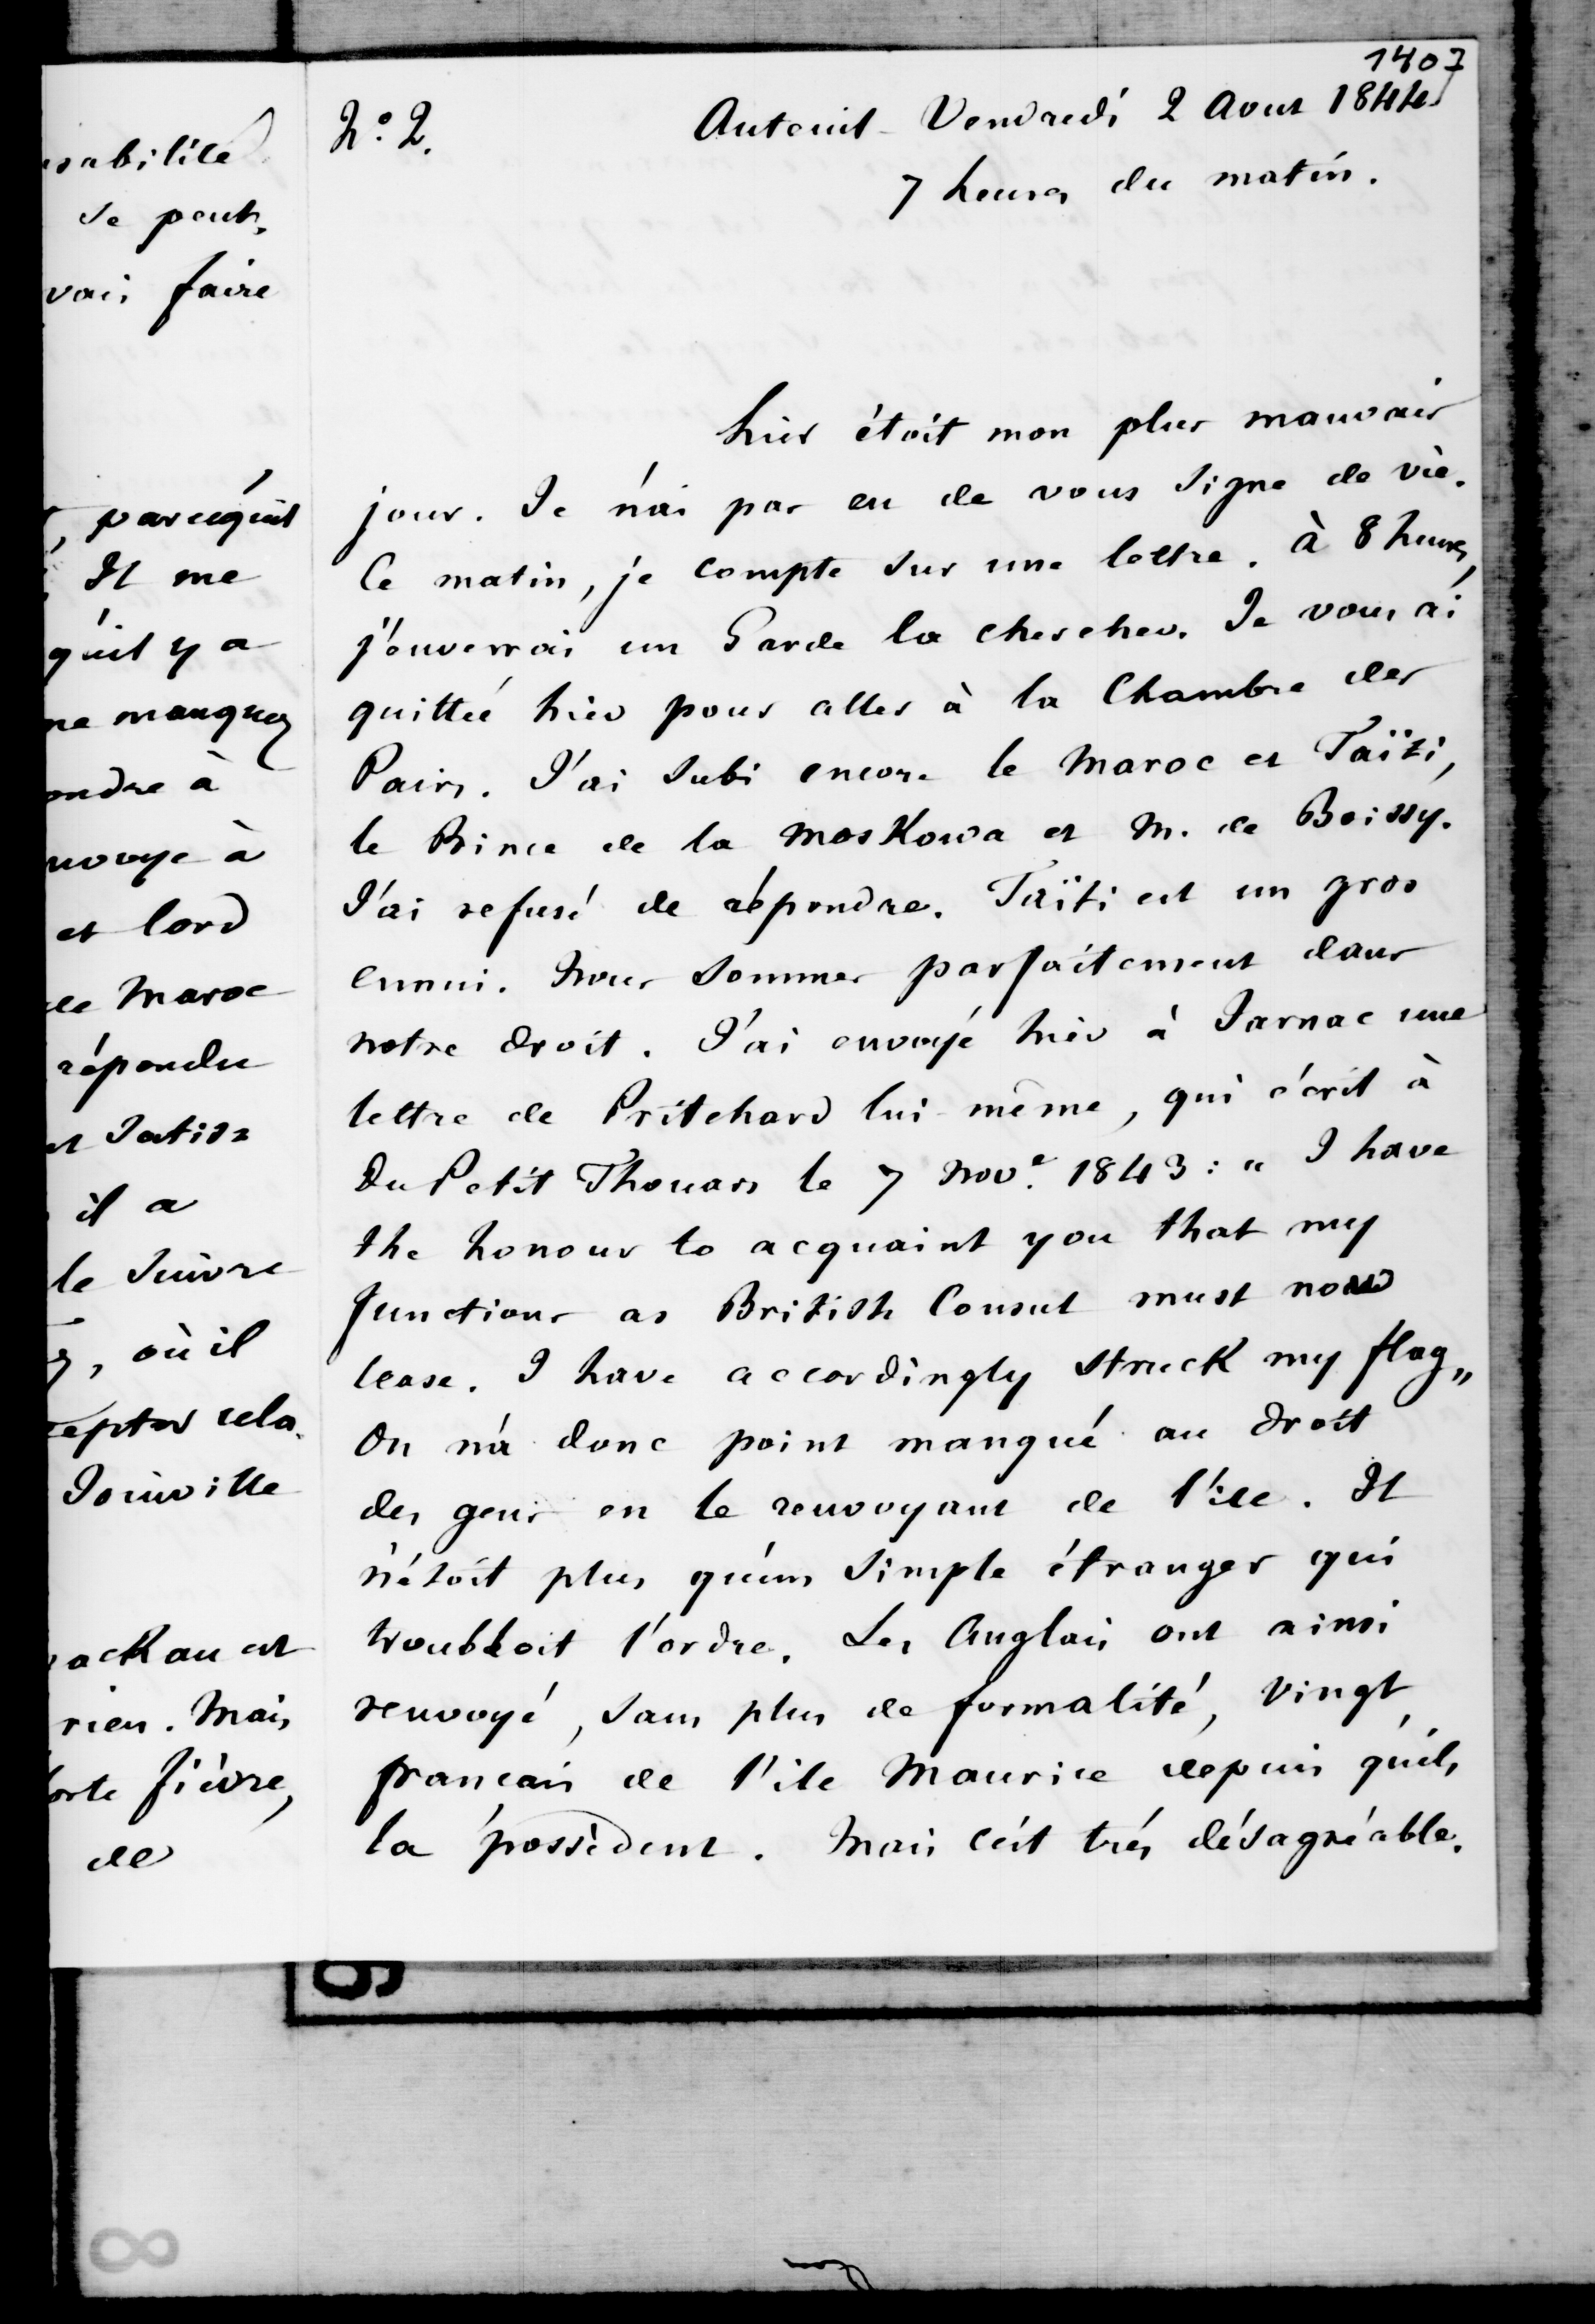 1407
N.° 2.
Auteuil - Vendredi 2 Aout 1844
7 heures du matin.
hier étoit mon plus mauvais
jour. Je n'ai pas eu de vous signe de vie.
Ce matin, je compte sur une lettre. à 8 heures,
j'enverrai un Garde la chercher. Je vous ai
quittée hier pour aller à la Chambre des
Pairs. J'ai subi encore le Maroc et Taïti,
le Prince de la Moskowa et M. de Boissy.
J'ai refusé de répondre. Taïti est un gros
ennui. Nous sommes parfaitement dans
notre droit. J'ai envoyé hier à Jarnac une
lettre de Pritchard lui-même, qui écrit à
Du Petit Thouars le 7 Nov.e 1843 : « I have
the honour to acquaint you that my
functions as British Consul must now
cease. I have accordingly struck my flag »
On n'a donc point manqué au droit
des gens en le renvoyant de l'ile. Il
n'étoit plus qu'un simple étranger qui
troubloit l'ordre. Les Anglais ont ainsi
renvoyé, sans plus de formalité, vingt
français de l'ile Maurice depuis qu'ils
la possèdent. Mais c'est très désagréable.
sabilité
se peut,
vais faire
, parcequ'il
Il me
qu'il y a
ne manquez
ondre à
nvoye à
et lord
le Maroc
répondu
et satis=
il a
le suivre
, où il
cepter cela.
Joinville
ackau est
rien. Mais
orte fièvre,
de
9
8